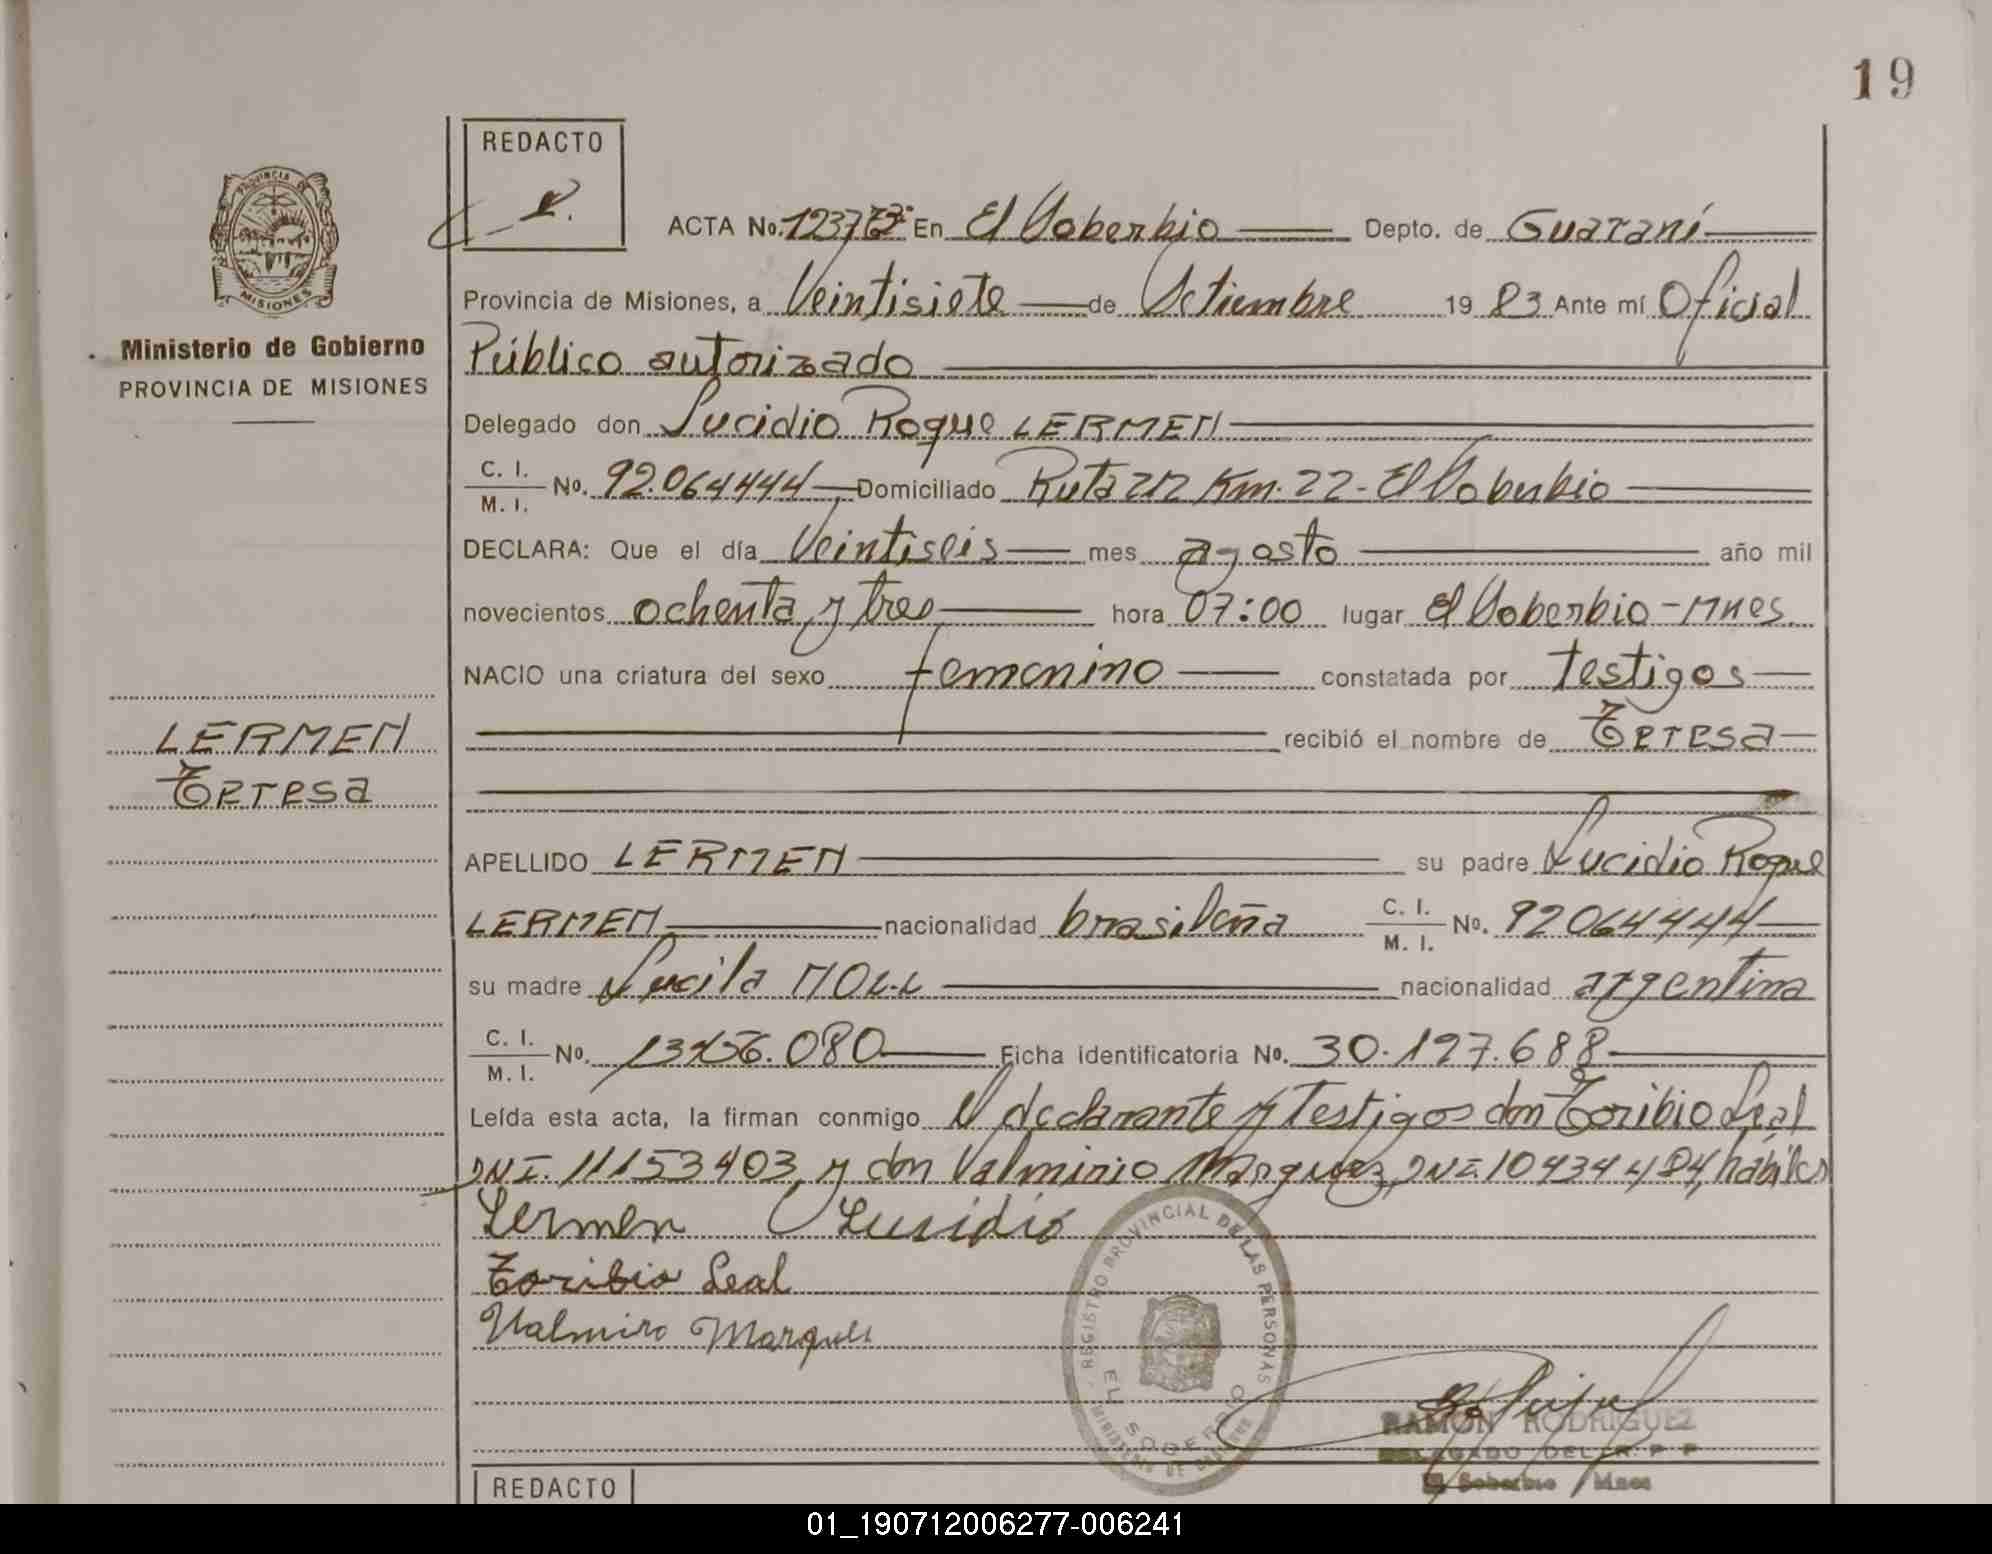 19
REDACTO
PROVINCIA DE
MISIONES
Ministerio de Gobierno
PROVINCIA DE MISIONES
ACTA No. En El Soberbio Depto. de Guaraní
Provincia de Misiones, a Veintisiete de Setiembre 19 83 Ante mí Oficial
Público autorizado
Delegado don Lucidio Roque LERMEN
C. I. / M. I. No. 92.064444 Domiciliado Ruta 212 Km. 22 - El Soberbio
DECLARA: Que el día Veintiseis mes agosto año mil
novecientos ochenta y tres hora 07:00 lugar El Soberbio - Mnes.
NACIO una criatura del sexo femenino constatada por testigos
recibió el nombre de Teresa
LERMEN
Teresa
APELLIDO LERMEN su padre Lucidio Roque
LERMEN nacionalidad brasileña C. I. / M. I. No. 92064444
su madre Lucila MOLL nacionalidad argentina
C. I. / M. I. No. Ficha identificatoria No. 30.127.688
Leída esta acta, la firman conmigo el declarante y Testigos don Toribio Leal
DNI. 11153403, y don Valmirio Marquez, DNI. 10434484, hábiles
Lermen Lusidio
Toribio Leal
Valmiro Marques
REGISTRO PROVINCIAL DE LAS PERSONAS
EL SOBERBIO
MINISTERIO DE GOBIERNO
RAMON RODRIGUEZ
DELEGADO DEL R. P. P
El Soberbio / Mnes
REDACTO
01_190712006277-006241